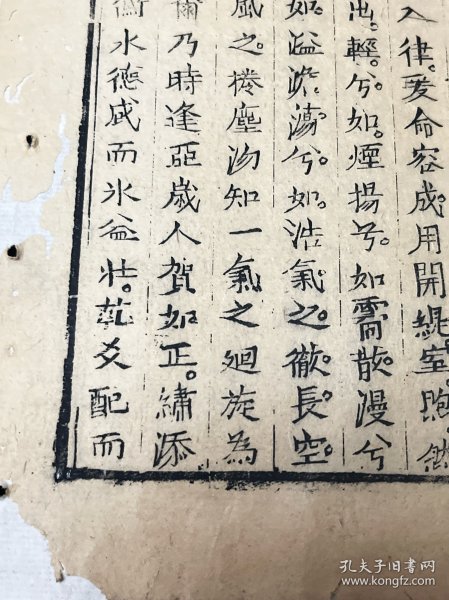 入律。爰命容成。用開緹室。煦然
出。輕兮。如煙揚兮。如霱散。漫兮
如溢。澹蕩兮。如浩氣之。徹長空。
風之捲塵。沕知一氣之迴旋。為
爾乃時逢亞歲。人賀如正。繡添
衡水德盛而氷益壯。乾爻配而
孔夫子旧书网
www.kongfz.com